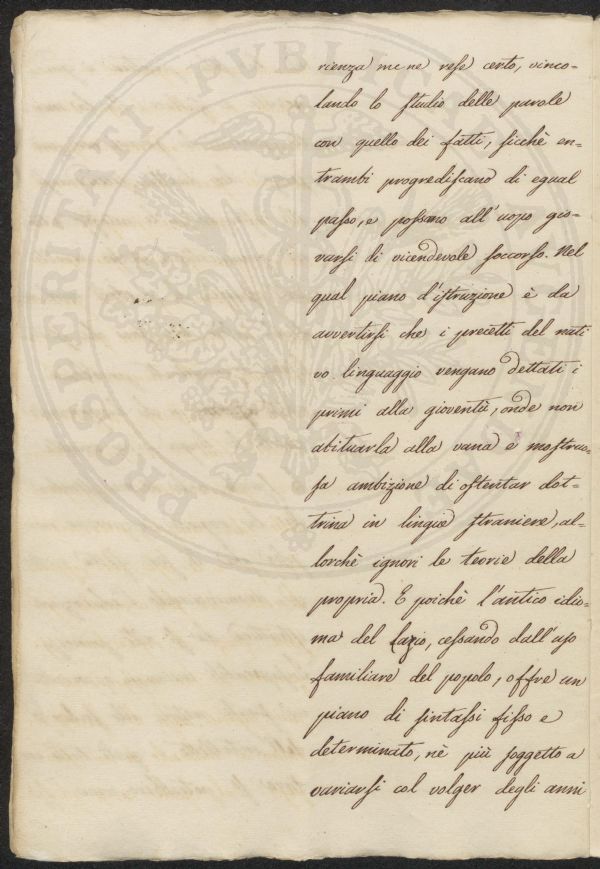 rienza me ne rese certo, vinco-
lando lo studio delle parole
con quello dei fatti, sicchè en-
trambi progrediscano di egual
passo, e possano all'uopo gio-
varsi di vicendevole soccorso. Nel
qual piano d'istruzione è da
avvertirsi che i precetti del nati
vo linguaggio vengano dettati i
primi alla gioventù, onde non
abituarla alla vana e mostruo-
sa ambizione di ostentar dot-
trina in lingue straniere, al-
lorchè ignori le teorie della
propria. E poichè l'antico idio-
ma del Lazio, cessando dall'uso
familiare del popolo, offre un
piano di sintassi fisso e
determinato, nè più soggetto a
variarsi col volger degli anni
PROSPERITATI PVBLICAE